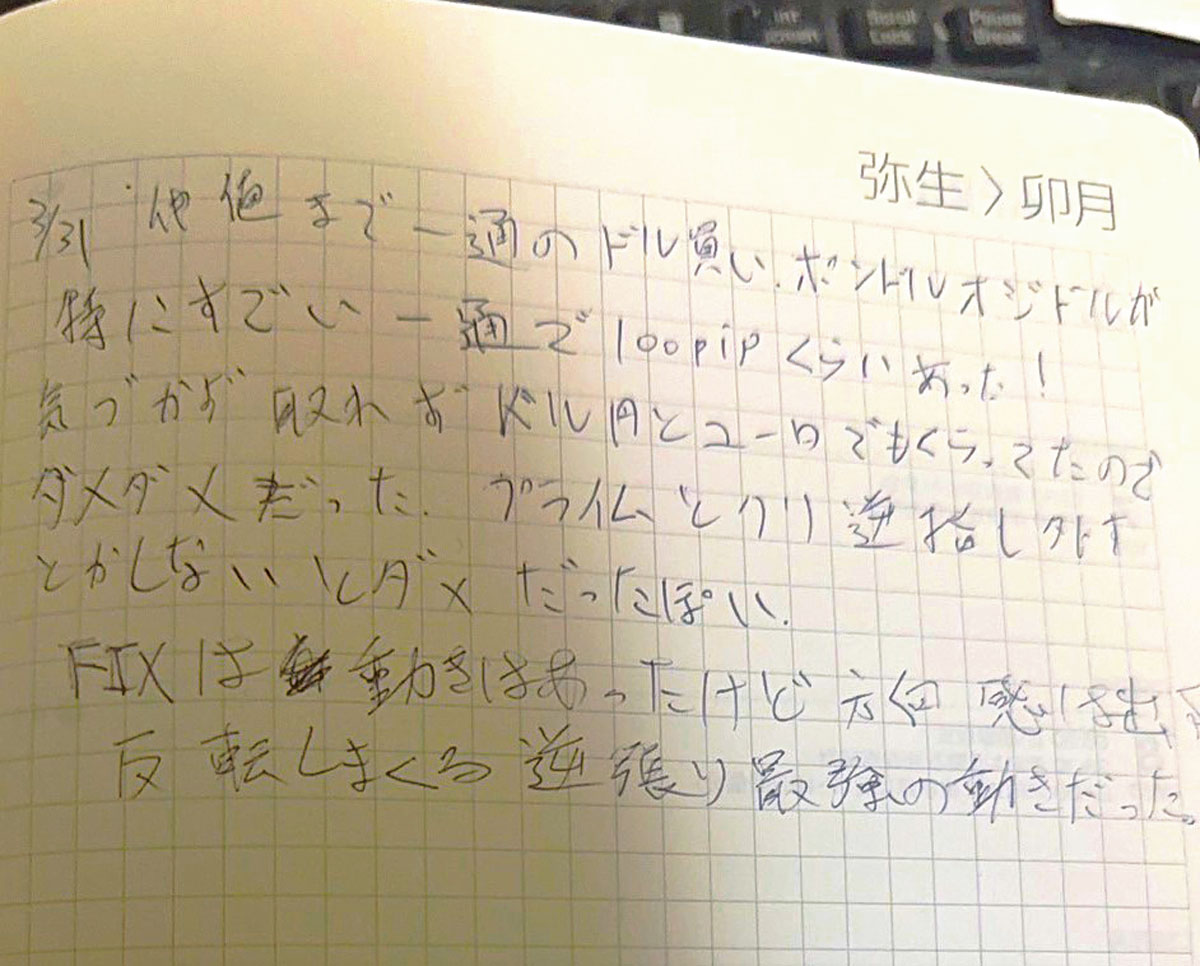 弥生 > 卯月
3/31 仲値まで一通のドル買い.ポンドルオジドルが
特にすごい一通で100pipくらいあった!
気づかず取れずドル円とユーロでもくらってたので
ダメダメだった. プライム とクリ 逆指し外す
とかしないとダメ だったぽい.
FIXは 動きはあったけど方向感は出
反転しまくる逆張り最強の動きだった。